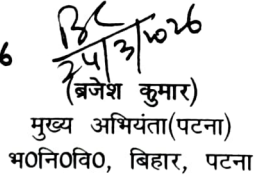 BC
24/3/2026
6
(ब्रजेश कुमार)
मुख्य अभियंता(पटना)
भ०नि०वि०, बिहार, पटना